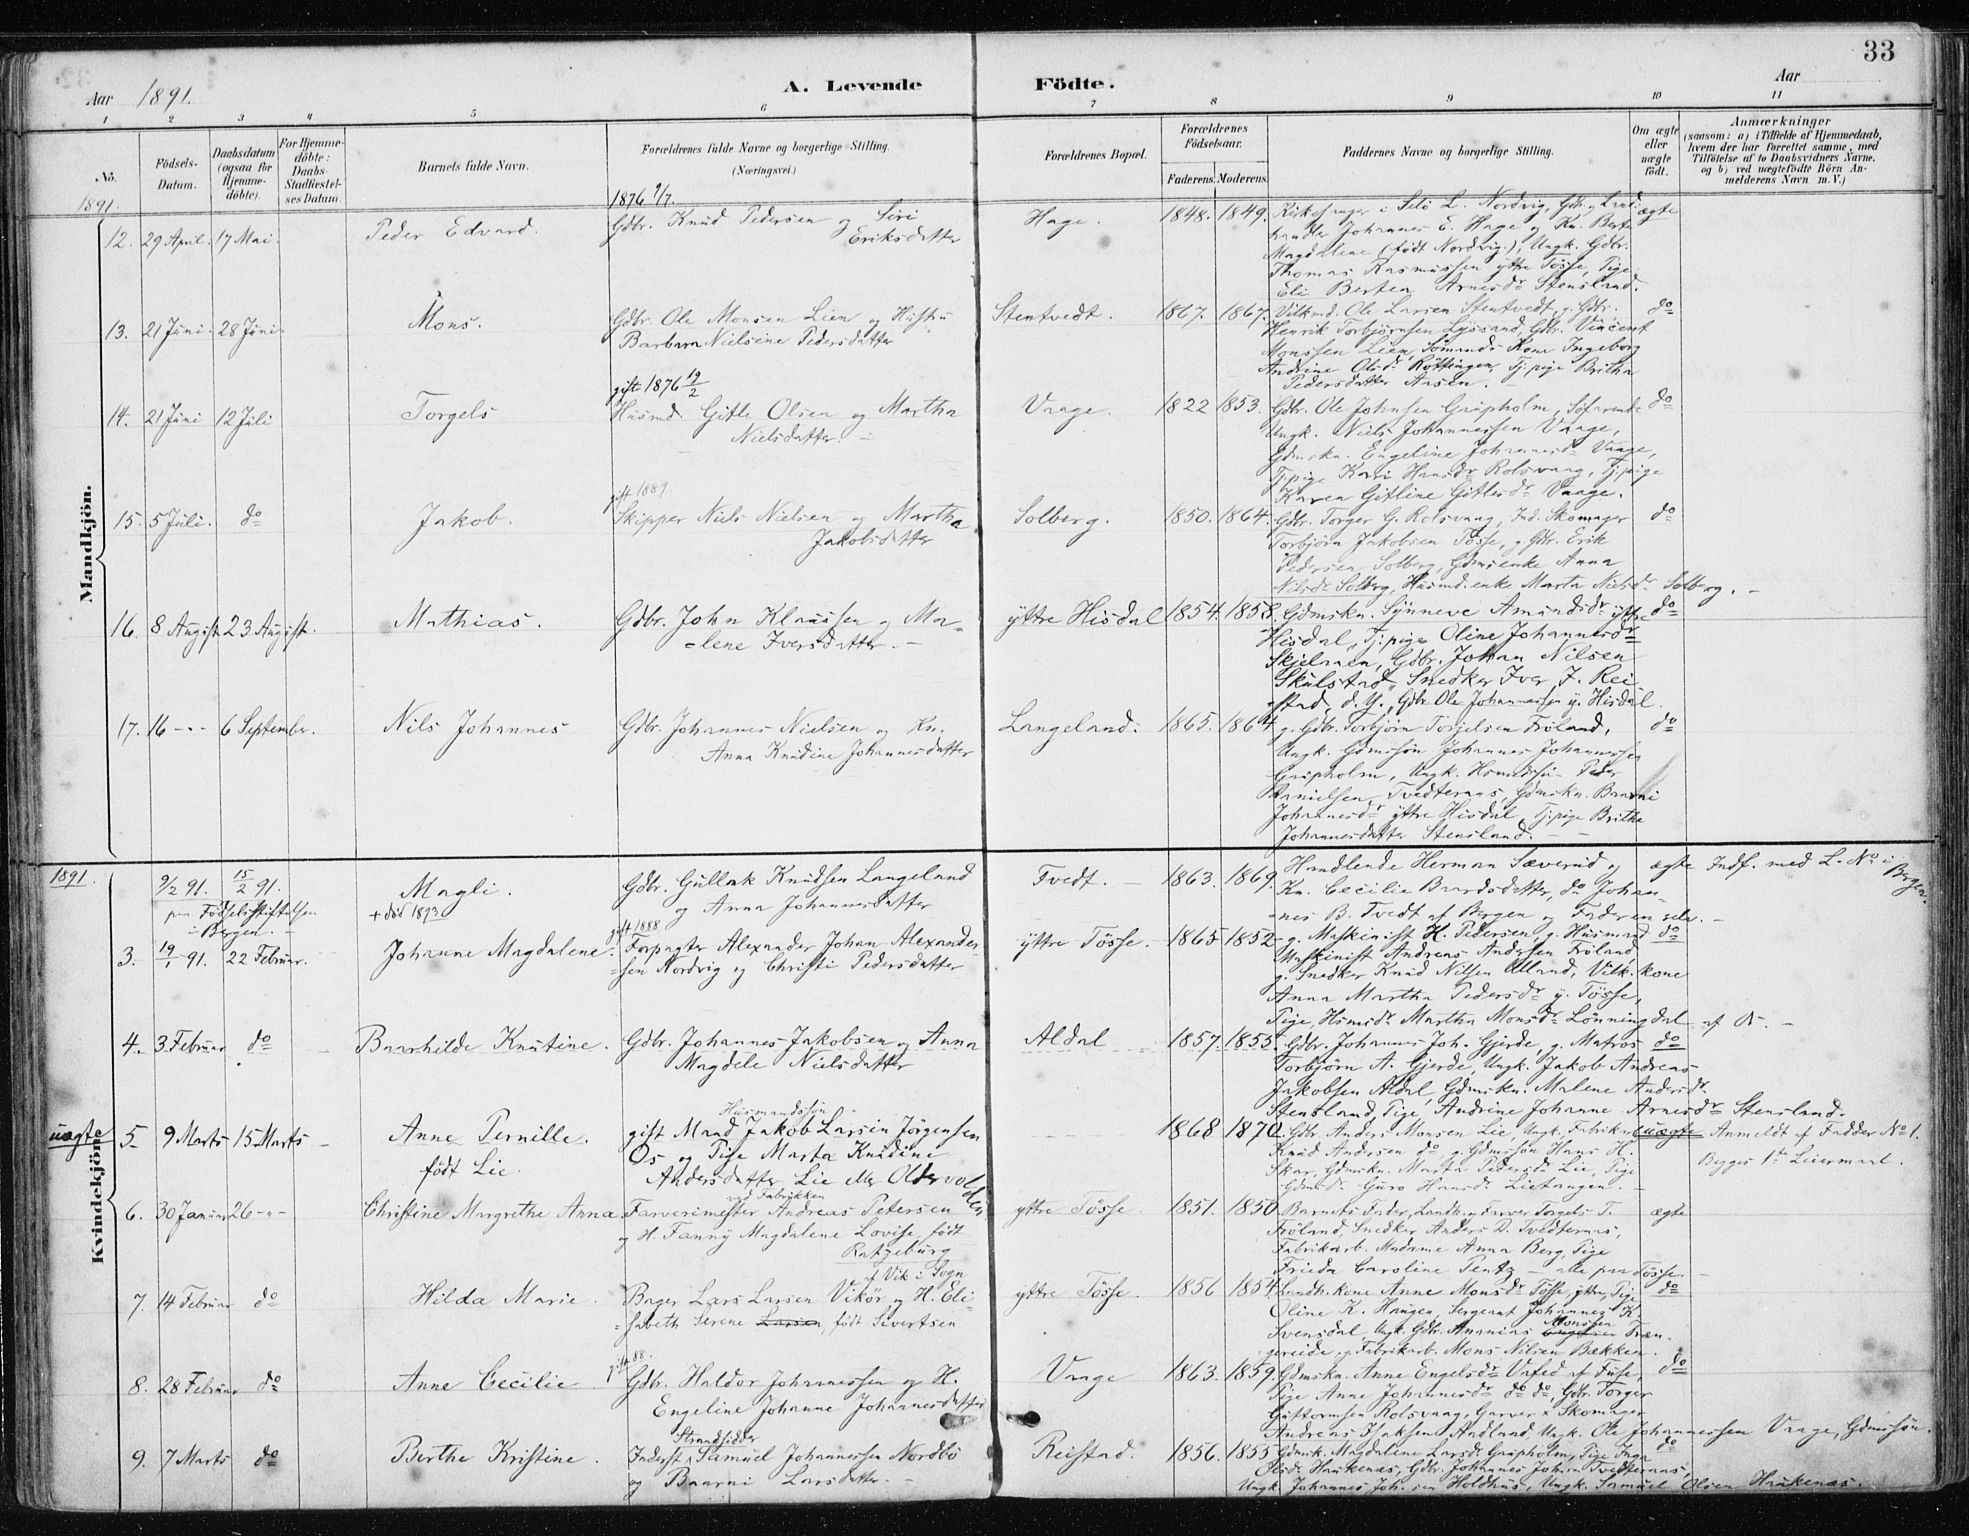 33
Aar 1891.
A. Levende Födte.
Aar
1 2 3 4 5 6 7 8 9 10 11
No.
Födsels-Datum.
Daabsdatum (ogsaa for Hjemme-döbte).
For Hjemme-döbte: Daabs-Stadfæstel-ses Datum.
Barnets fulde Navn.
Forældrenes fulde Navne og borgerlige Stilling. (Næringsvei.)
Forældrenes Bopæl.
Forældrenes Födselsaar.
Faderens. Moderens.
Faddernes Navne og borgerlige Stilling.
Om ægte eller uægte födt.
Anmærkninger
(saasom: a) i Tilfælde af Hjemmedaab, hvem der har forrettet samme, med Tilföielse af to Daabsvidners Navne, og b) ved uægtefödte Börn An-melderens Navn m. V.)
Mandkjön.
1891.
12. 29 April. 17 Mai. Peder Edvard.
1876 9/7.
Gdbr. Knud Pedersen og Siri
Eriksdatter
Hage. 1848. 1849.
Kirkesanger i Selö L. Nordvig, Gdbr. og Land-
handler Johannes E. Hage og Kn. Berte
Magdalene (født Nordvig), Ungk. Gdbr.
Thomas Rasmussen yttre Tösse, Pige
Eli Berten Arnesdr Stensland.
ægte
13. 21 Juni. 28 Juni. Mons.
Gdbr. Ole Monsen Lien og Hustru
Barbara Nielsine Pedersdatter
Stentvedt. 1867. 1867.
Vilkmd. Ole Larsen Stentvedt, g. Gdbr.
Henrik Torbjörnsen Lyssand, Gdbr. Vincent
Monssen Lien, Sömands Kone Ingeborg
Andrine Olsdr Röttingen, Tj. pige Britha
Pedersdatter Aasen.
do
14. 21 Juni 12 Juli Torgels
gift 1876 19/2
Husmd. Gitle Olsen og Martha
Nielsdatter
Vaage. 1822 1853.
Gdbr. Ole Johnsen Gripholm, Söfarende
Ungk. Niels Johannessen Vaage,
Gdmskn. Engeline Johannesdr Vaage,
Tj.pige Kari Hansdr Rolsvaag, Tj.pige
Karen Gitline Gitlesdr Vaage.
do
15. 5 Juli. do Jakob.
gift 1889
Skipper Niels Nielsen og Martha
Jakobsdatter
Solberg. 1850. 1864.
Gdbr. Torger G. Rolsvaag, Ind. Skomager
Torbjörn Jakobsen Tösse, g. Gdbr. Erik
Pedersen Solberg, Gdmsenke Anna
Nilsdr Solberg, Husmd.enke Marta Nielsdr Solberg.
do
16. 8 August 23 August. Mathias.
Gdbr. John Klaussen og Ma-
lene Iversdatter.
yttre Hisdal 1854. 1858.
Gdmskn. Synneve Amundsdr yttre
Hisdal, Tj.pige Oline Johannesdr
Skjelaaen, Gdbr. Johan Nilsen
Skulstad, Snedker Iver J. Rei
stad, d. Y., Gdbr. Ole Johannessen y. Hisdal.
do
17. 16 - - 6 September. Nils Johannes
Gdbr. Johannes Nielsen og Kn.
Anna Knudine Johannesdatter
Langeland. 1865. 1864.
g. Gdbr. Torbjörn Torgelsen Fröland,
Ungk. Gdmssön Johannes Johannessen
Gripholm, Ungk. Husmdssön Peder
Danielsen Tvedteraas, Gdmskn. Baarni
Johannesdr yttre Hisdal, Tj.pige Brithe
Johannesdatter Stensland.
do
Kvindekjön.
1891.
9/2 91. 15/2 91.
paa Födselsstiftelsen
i Bergen.
Magli.
+ död 1893
Gdbr. Gullak Knudsen Langeland
og Anna Johannesdatter
Tvedt. 1863. 1869.
Handlende Herman Sæverud og
Kn. Cecilie Baardsdatter, do Johan-
nes B. Tvedt af Bergen og Faderen selv.
ægte
Indf. med L. No i Bergen.
3. 19/1 91. 22 Februar. Johanne Magdalene.
gift 1888
Forpagter Alexander Johan Alexander-
sen Nordvig og Christi Pedersdatter
yttre Tösse. 1865 1852
g. Maskinist H. Pedersen, g. Husmand
Maskinist Andreas Andersen Fröland,
g. Snedker Knud Nilsen Ulland, Vilk. kone
Anna Martha Pedersdr y. Tösse,
Pige, Hsmdr Martha Monsdr Lönningdal af O.
do
4. 3 Februar do Baarhilde Knutine.
Gdbr. Johannes Jakobsen og Anna
Magdele Nielsdatter
Aldal 1857. 1855.
Gdbr. Johannes Joh. Gjerde, g. Matros
Torbjörn A. Gjerde, Ungk. Jakob Andreas
Jakobsen Aldal, Gdmskn. Malene Andersdr
Stensland, Pige Andrine Johanne Arnesdr Stensland.
do
uægte 5. 9 Marts 15 Marts Anne Pernille.
födt Lie.
Husmandssön
gift Mand Jakob Larsin Jörgensen
Os og Pige Marta Knudine
Andersdatter Lie eller Oldervolden
1868 1870
Gdbr. Anders Monsen Lie, Ungk. Fabrikarb.
Knud Andersen do, g. Gdmssön Hans H.
Skar, Gdmskn. Marta Pedersdr Lie, Pige
Gdmdr Guro Hansdr Lietangen.
uægte
Anmeldt af Fadder No 1.
Begges 1ste Leiermaal.
6. 30 Januar 26 - - Christine Margrethe Anna
ved Fabrikken
Farverimester Andreas Petersen
og H. Fanny Magdalene Lovise, födt
Ratzeburg
yttre Tösse. 1851. 1850.
Barnets Fader, Landh. og Farver Torgels T.
Fröland, Snedker Anders D. Tvedteraas,
Fabrikarb. Madame Anna Berg, Pige
Frieda Caroline Pentz - alle paa Tösse.
ægte
7. 14 Februar do Hilda Marie.
af Vik i Sogn
Bager Lars Larsen Vikör og H. Eli-
sabeth Serene Larsen, födt Sivertsen
yttre Tösse. 1856 1854.
Landh. kone Anne Monsdr Tösse, yttre, Pige
Oline K. Haugen, Sergeant Johannes K.
Svensdal, Ungk. Gdbr. Ananias Monssen Træn-
gereide, g. Fabrikarb. Mons Nilsen Bækken.
do
8. 28 Februar do Anne Cecilie
gift 88.
Gdbr. Haldor Johannessen og H.
Engeline Johanne Johannesdatter
Vaage 1863. 1859.
Gdmskn. Anne Engelsdr Vafed af Fuse,
Pige Anne Johannesdr do do, Gdbr. Torger
Guttormsen Rolsvaag, Garver & Skomager
Andreas Isaksen Aadland, Ungk. Ole Johannessen Vaage, Gdmssön.
do
9. 7 Marts do Berthe Kristine.
Strandsidder
Inderst Samuel Johannessen Nordbö
og Baarni Larsdatter.
Reistad. 1856. 1855
Gdmsk. Magdalene Larsdr Gripholm, Pige Inga
Olsdr Haukenæs, Gdbr. Johannes Johnsen Tvedteraas,
Ungk. Johannes Joh.sen Holdhus, Ungk. Samuel Olsen Haukenæs.
do